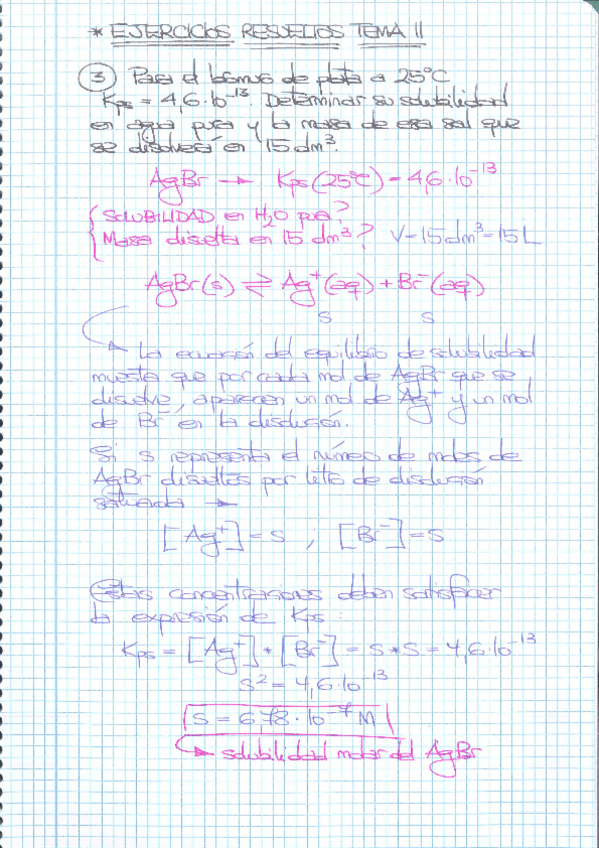 * EJERCICIOS RESUELTOS TEMA 11
③ Para el bromuro de plata a 25°C
Kps = 4,6·10⁻¹³. Determinar su solubilidad
en agua pura y la masa de esa sal que
se disolverá en 15 dm³.
AgBr → Kps (25°C) = 4,6·10⁻¹³
{ SOLUBILIDAD en H₂O pura?
{ Masa disuelta en 15 dm³? V=15dm³=15L
AgBr(s) ⇌ Ag⁺(aq) + Br⁻(aq)
s s
↳ La ecuación del equilibrio de solubilidad
muestra que por cada mol de AgBr que se
disuelve, aparecen un mol de Ag⁺ y un mol
de Br⁻ en la disolución.
Si s representa el número de moles de
AgBr disueltos por litro de disolución
saturada →
[Ag⁺] = s ; [Br⁻] = s
Estas concentraciones deben satisfacer
la expresión de Kps:
Kps = [Ag⁺] * [Br⁻] = s * s = 4,6·10⁻¹³
s² = 4,6·10⁻¹³
s = 6,78·10⁻⁷ M
↳ solubilidad molar del AgBr